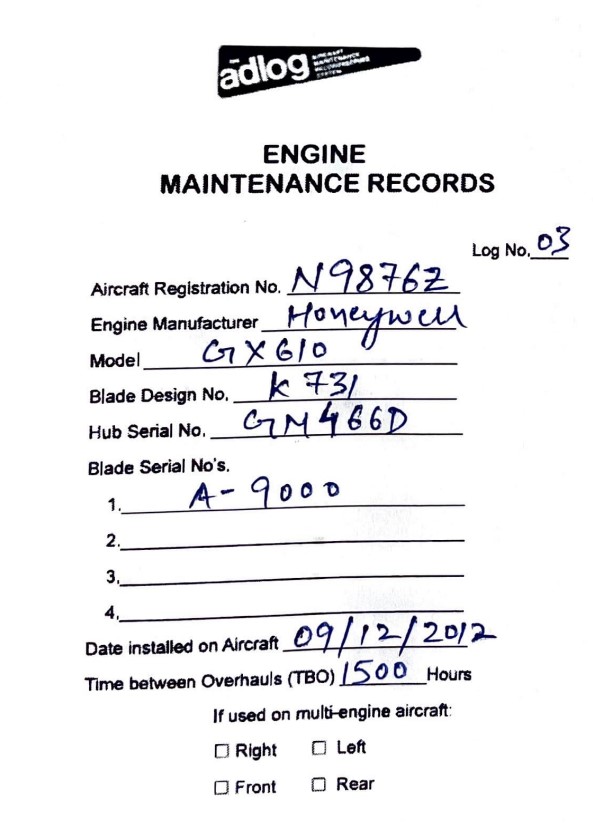 adlog AIRCRAFT
MAINTENANCE
RECORDKEEPING
SYSTEM
ENGINE
MAINTENANCE RECORDS
Log No. 03
Aircraft Registration No. N9876Z
Engine Manufacturer Honeywell
Model GX610
Blade Design No. K 731
Hub Serial No. GM466D
Blade Serial No's.
1. A-9000
2.
3.
4.
Date installed on Aircraft 09/12/2012
Time between Overhauls (TBO) 1500 Hours
If used on multi-engine aircraft:
☐ Right ☐ Left
☐ Front ☐ Rear